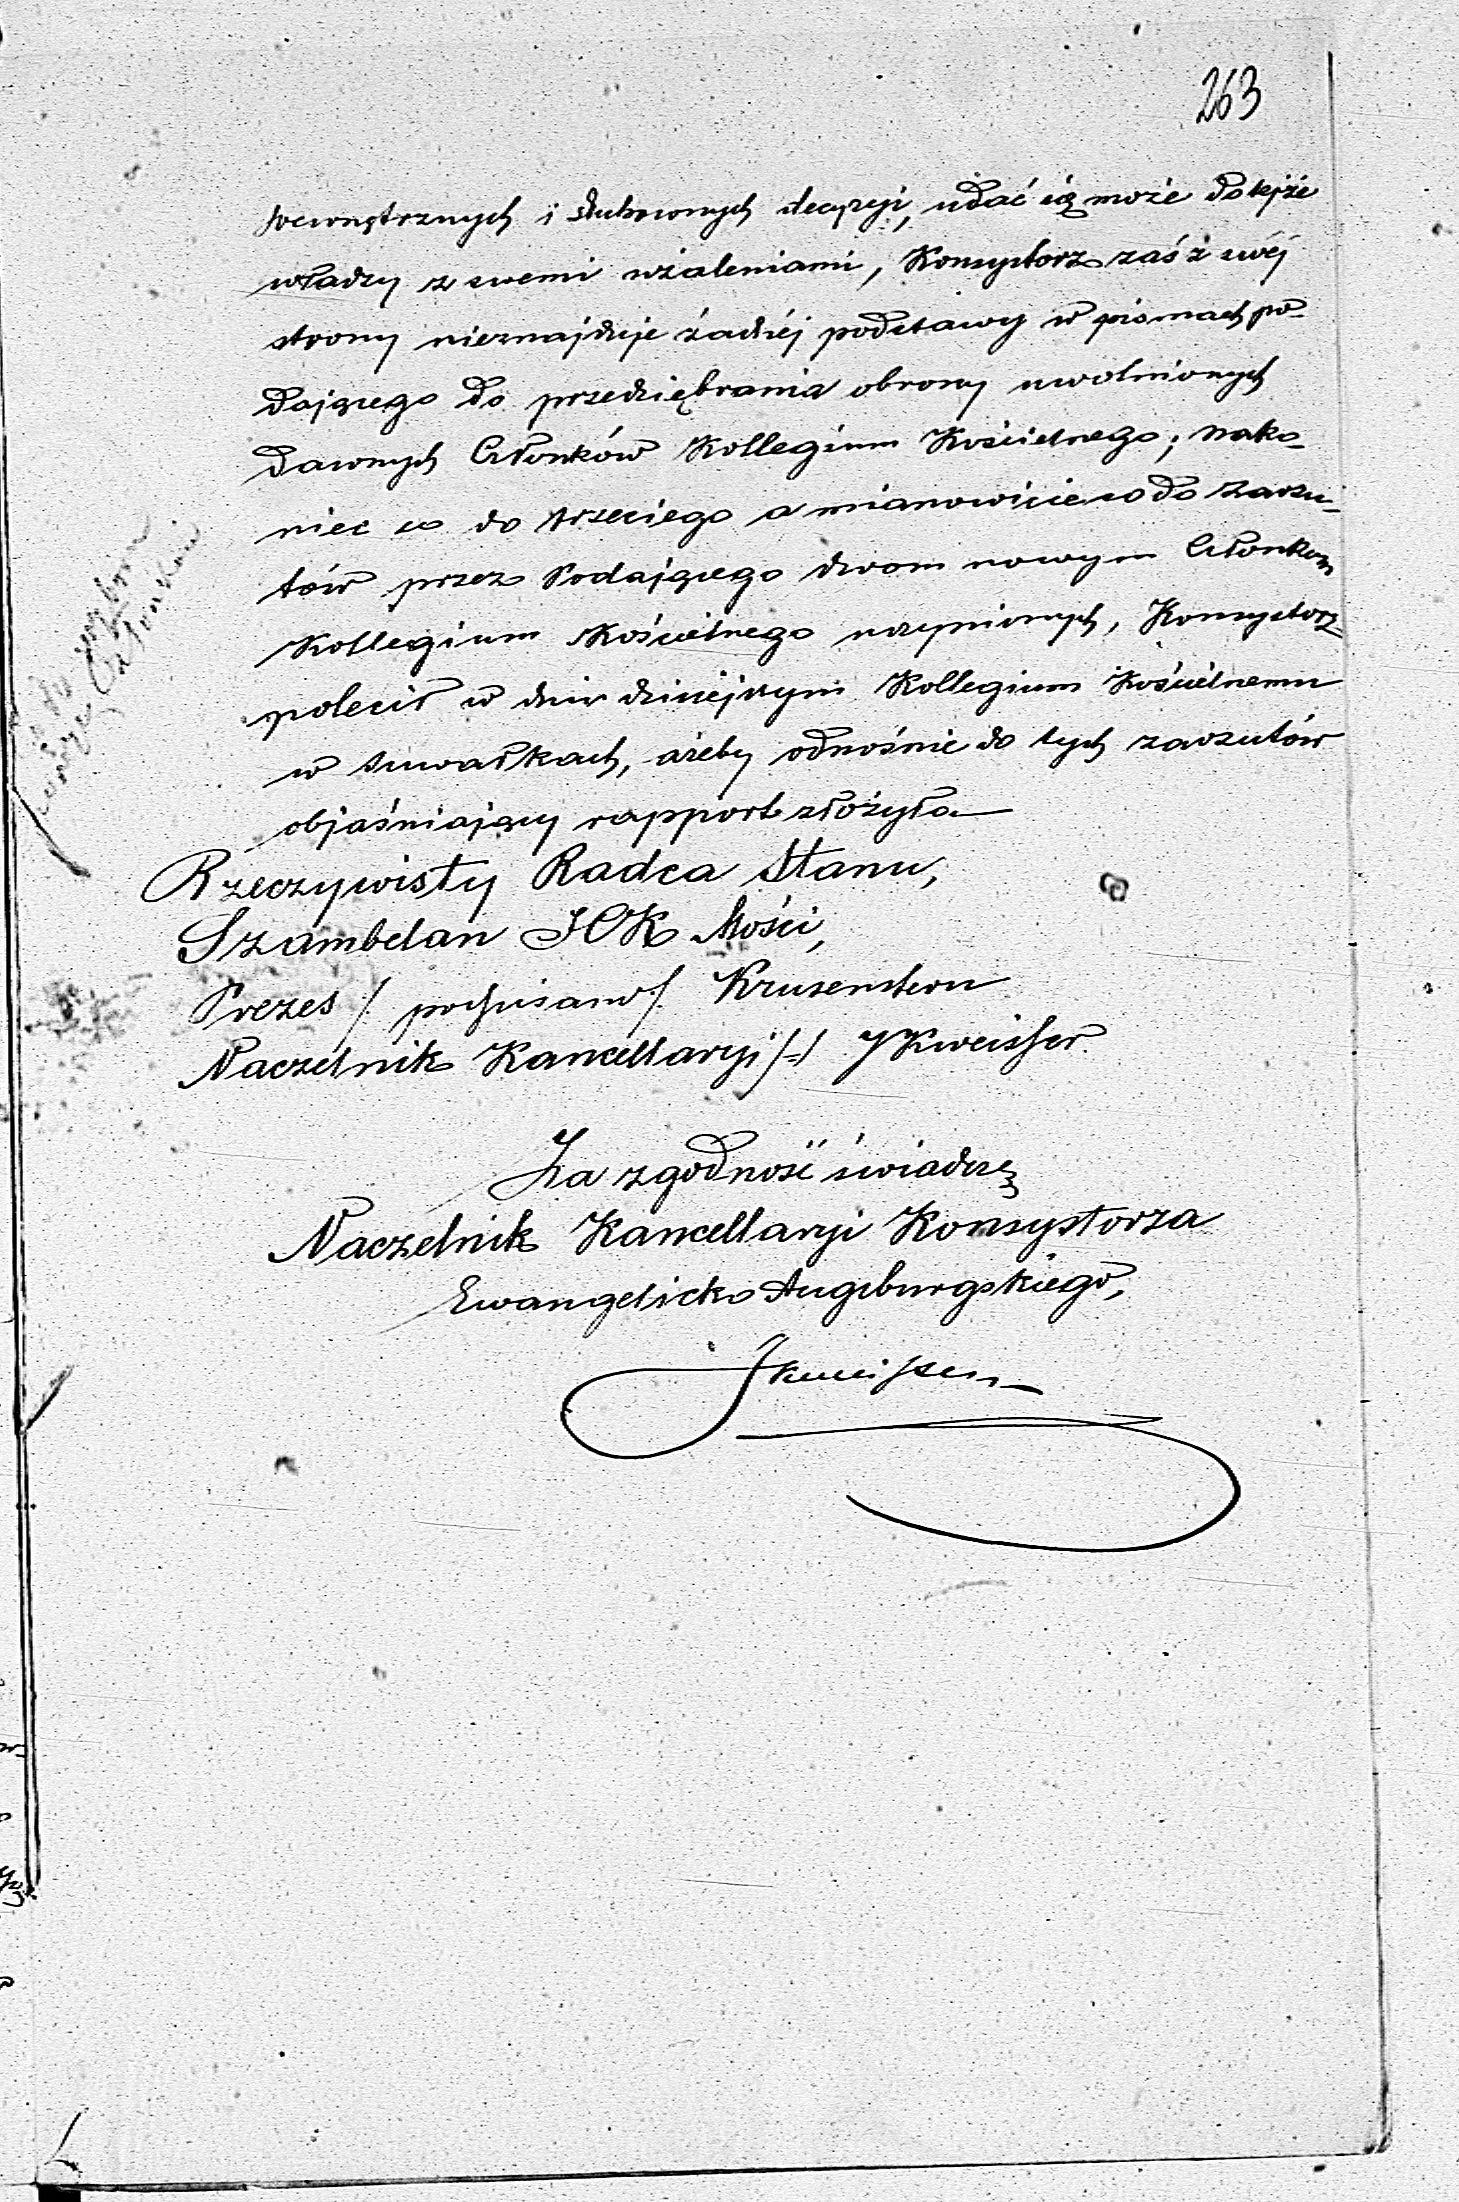 263
Wewnętrznych i Duchownych decyzyi, udać się może do tejże
władzy z swemi użaleniami, Konsystorz zaś z swéj
strony nieznajduje żadnéj podstawy w pismach po-
dającego do przedziębrania obrony uwolnionych
dawnych Członków Kollegium Kościelnego; nako-
niec co do trzeciego a mianowicie co do zarzu-
tów przez Podającego dwom nowym Członkom
Kollegium Kościelnego uczynionych, Konsystorz
polecił w dniu dzisiejszym Kollegium Kościelnemu
w Suwałkach, ażeby odnośnie do tych zarzutów
objaśniający rapport złożyło.
Rzeczywisty Radca Stanu,
Szambelan JCK Mości,
Prezes /podpisano/ Krusenstern
Naczelnik Kancellaryi /-/
Za zgodność świadczę
Naczelnik Kancellaryi Konsystorza
Ewangelicko Augsburgskiego,